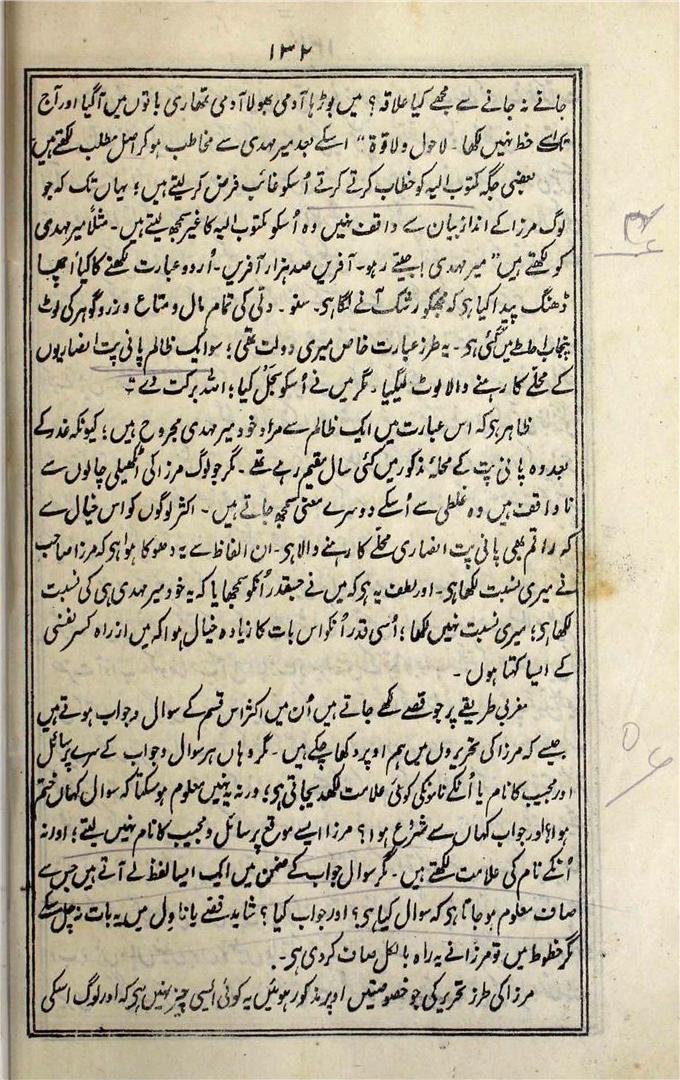 ۱۳۲
جانے نہ جانے سے مجھے کیا علاقہ؟ میں بوڑہا آدمی بھولا آدمی تمھاری باتوں میں آگیا اور آج
تک اُسے خط نہیں لکھا۔ لاحول ولا قوۃ" اسکے بعد میر مہدی سے مخاطب ہوکر اصل مطلب لکھتے ہیں
بعضی جگہ مکتوب الیہ کو خطاب کرتے کرتے اُسکو غائب فرض کرلیتے ہیں؛ یہاں تک کہ جو
لوگ مرزا کے اندازِ بیان سے واقف نہیں وہ اُسکو مکتوب الیہ کا غیر سمجھ لیتے ہیں۔ مثلاً میر مہدی
کو لکھتے ہیں "میر مہدی! جیتے رہو۔ آفریں صد ہزار آفریں۔ اُردو عبارت لکھنے کا کیا اچھا
ڈھنگ پیدا کیا ہی کہ مجھکو رشک آنے لگا ہی۔ سنو۔ دلّی کی تمام مال و متاع و زر و گوہر کی لوٹ
پنجاب احاطے میں گئی ہی۔ یہ طرز عبارت خاص میری دولت تھی؛ سو ایک ظالم پانی پت انصاریوں
کے محلّے کا رہنے والا لوٹ لیگیا۔ مگر میں نے اُسکو بحل کیا؛ اللہ برکت دے"
ظاہر ہی کہ اس عبارت میں ایک ظالم سے مراد خود میر مہدی مجروح ہیں؛ کیونکہ غدر کے
بعد وہ پانی پت کے محلۂ مذکور میں کئی سال مقیم رہے تھے۔ مگر جو لوگ مرزا کی اٹھکھیلی چالوں سے
ناواقف ہیں وہ غلطی سے اُسکے دوسرے معنی سمجھ جاتے ہیں۔ اکثر لوگوں کو اس خیال سے
کہ راقم بھی پانی پت انصاری محلّے کا رہنے والا ہی۔ ان الفاظ سے یہ دھوکا ہوا ہی کہ مرزا صاحب
نے میری نسبت لکھا ہی۔ اور لطف یہ ہی کہ میں نے جسقدر اُنکو سمجھایا کہ یہ خود میر مہدی ہی کی نسبت
لکھا ہی؛ میری نسبت نہیں لکھا؛ اُسی قدر اُنکو اس بات کا زیادہ خیال ہوا کہ میں از راہ کسر نفسی
کے ایسا کہتا ہوں۔
مغربی طریقے پر جو قصّے لکھے جاتے ہیں اُن میں اکثر اس قسم کے سوال و جواب ہوتے ہیں
جیسے کہ مرزا کی تحریروں میں ہم اوپر دکھا چکے ہیں۔ مگر وہاں ہر سوال و جواب کے سرے پر سائل
اور مجیب کا نام یا اُنکے ناموں کی کوئی علامت لکھدیجاتی ہی؛ ورنہ یہ نہیں معلوم ہوسکتا کہ سوال کہاں ختم
ہوا؟ اور جواب کہاں سے شروع ہوا؟ مرزا ایسے موقع پر سائل و مجیب کا نام نہیں لیتے؛ اور نہ
اُنکے نام کی علامت لکھتے ہیں۔ مگر سوال جواب کے ضمن میں ایک ایسا لفظ لے آتے ہیں جس سے
صاف معلوم ہوجاتا ہی کہ سوال کیا ہی؟ اور جواب کیا؟ شاید قصّے یا ناول میں یہ بات نہ چل سکے
مگر خطوط میں تو مرزا نے یہ راہ بالکل صاف کردی ہی۔
مرزا کی طرز تحریر کی جو خصوصیتیں اوپر مذکور ہوئیں یہ کوئی ایسی چیز نہیں ہی کہ اور لوگ اسکی